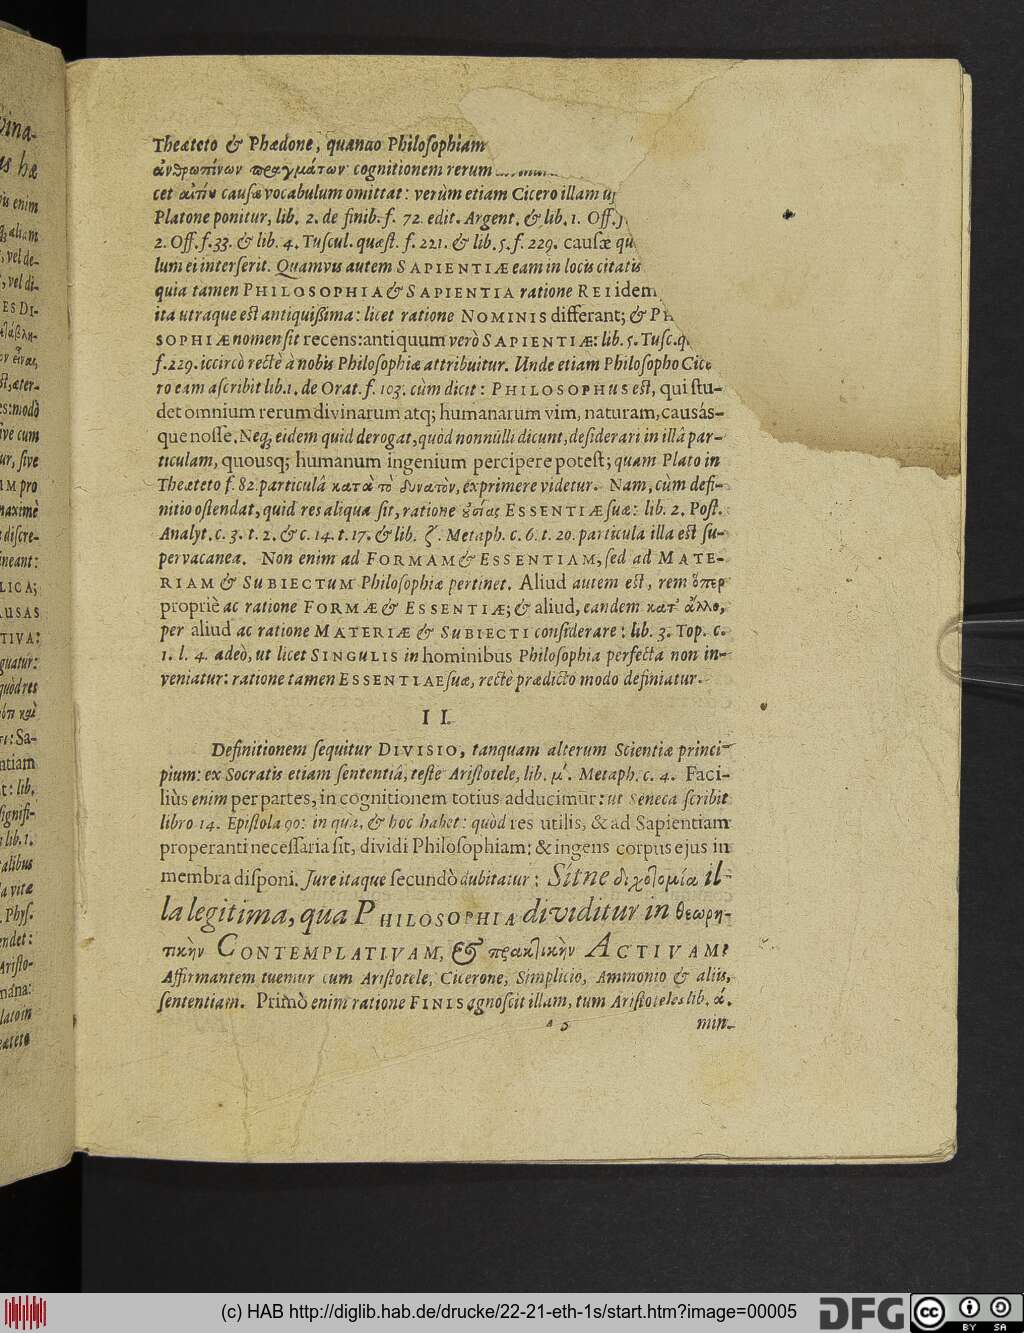 Theæteto & Phædone, quando Philosophiam
ἀνθρωπίνων πραγμάτων cognitionem rerum
cet αἰτίων causæ vocabulum omittat: verùm etiam Cicero illam
Platone ponitur, lib. 2. de finib. f. 72. edit. Argent. & lib. 1. Off.
2. Off. f. 33. & lib. 4. Tuscul. quæst. f. 221. & lib. 5. f. 229. causæ
lum ei interserit. Quamvis autem SAPIENTIÆ eam in locis citatis
quia tamen PHILOSOPHIA & SAPIENTIA ratione REI idem
ita utraque est antiquißima: licet ratione NOMINIS differant; &
SOPHIÆ nomen sit recens: antiquum verò SAPIENTIÆ: lib. 5. Tusc.
f. 229. iccircò rectè à nobis Philosophiæ attribuitur. Unde etiam Philosopho Cice
ro eam ascribit lib. 1. de Orat. f. 103. cùm dicit: PHILOSOPHUS est, qui stu-
det omnium rerum divinarum atq; humanarum vim, naturam, causás-
que nosse. Neq; eidem quid derogat, quòd nonnulli dicunt, desiderari in illâ par-
ticulam, quousq; humanum ingenium percipere potest; quam Plato in
Theæteto f. 82. particulâ κατὰ τὸ δυνατὸν, exprimere videtur. Nam, cùm defi-
nitio ostendat, quid res aliqua sit, ratione ȣ̓σίας ESSENTIÆ suæ: lib. 2. Post.
Analyt. c. 3. t. 2. & c. 14. t. 17. & lib. ζ. Metaph. c. 6. t. 20. particula illa est su-
pervacanea. Non enim ad FORMAM & ESSENTIAM, sed ad MATE-
RIAM & SUBIECTUM Philosophiæ pertinet. Aliud autem est, rem ὅπερ
propriè ac ratione FORMÆ & ESSENTIÆ; & aliud, eandem κατ' ἄλλο,
per aliud ac ratione MATERIÆ & SUBIECTI considerare: lib. 3. Top. c.
1. l. 4. adeò, ut licet SINGULIS in hominibus Philosophia perfecta non in-
veniatur: ratione tamen ESSENTIAE suæ, rectè prædicto modo definiatur.
II.
Definitionem sequitur DIVISIO, tanquam alterum Scientiæ princi-
pium: ex Socratis etiam sententiâ, teste Aristotele, lib. μ'. Metaph. c. 4. Faci-
liùs enim per partes, in cognitionem totius adducimur: ut Seneca scribit
libro 14. Epistola 90: in qua, & hoc habet: quòd res utilis, & ad Sapientiam
properanti necessaria sit, dividi Philosophiam: & ingens corpus ejus in
membra disponi. Jure itaque secundò dubitatur: Sítne διχοτομία il-
la legitima, qua PHILOSOPHIA dividitur in θεωρη-
τικὴν CONTEMPLATIVAM, & πρακτικὴν ACTIVAM?
Affirmantem tuemur cum Aristotele, Cicerone, Simplicio, Ammonio & aliis,
sententiam. Primò enim ratione FINIS agnoscit illam, tum Aristoteles lib. ά.
min.
(c) HAB http://diglib.hab.de/drucke/22-21-eth-1s/start.htm?image=00005
DFG
cc
BY SA